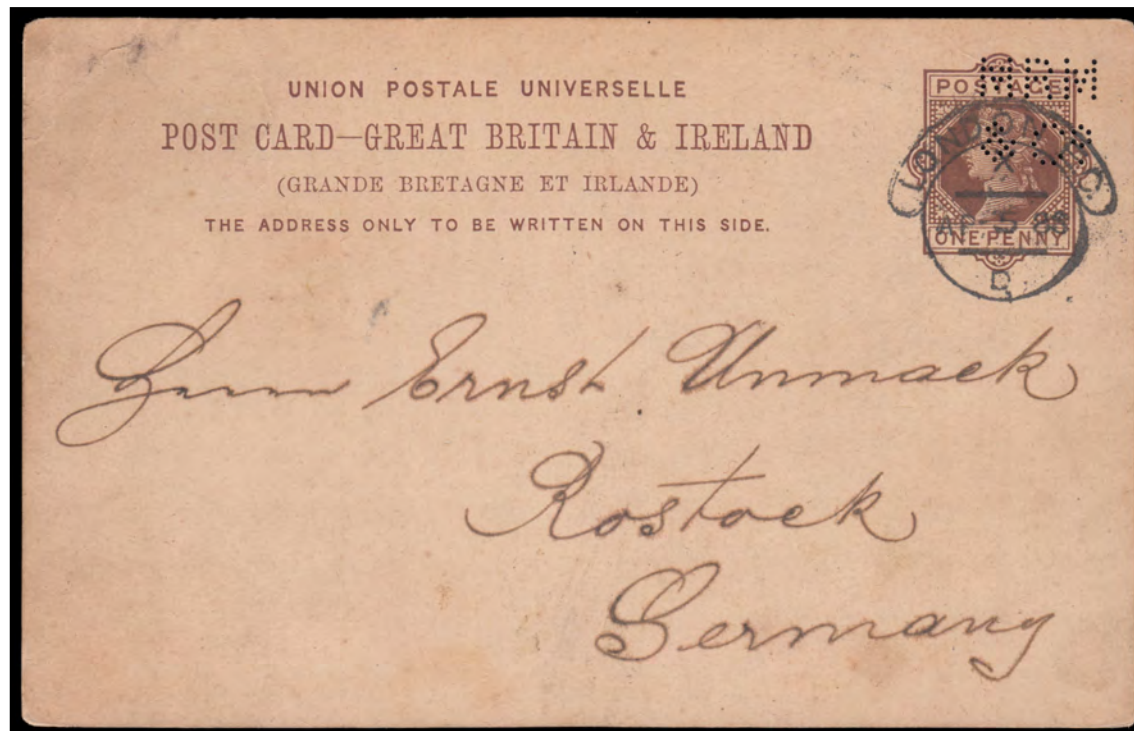 UNION POSTALE UNIVERSELLE
POST CARD—GREAT BRITAIN & IRELAND
(GRANDE BRETAGNE ET IRLANDE)
THE ADDRESS ONLY TO BE WRITTEN ON THIS SIDE.
POSTAGE
& Co
LONDON E.C.
X
AP 5 86
D
ONE PENNY
Herrn Ernst Unmack
Rostock
Germany